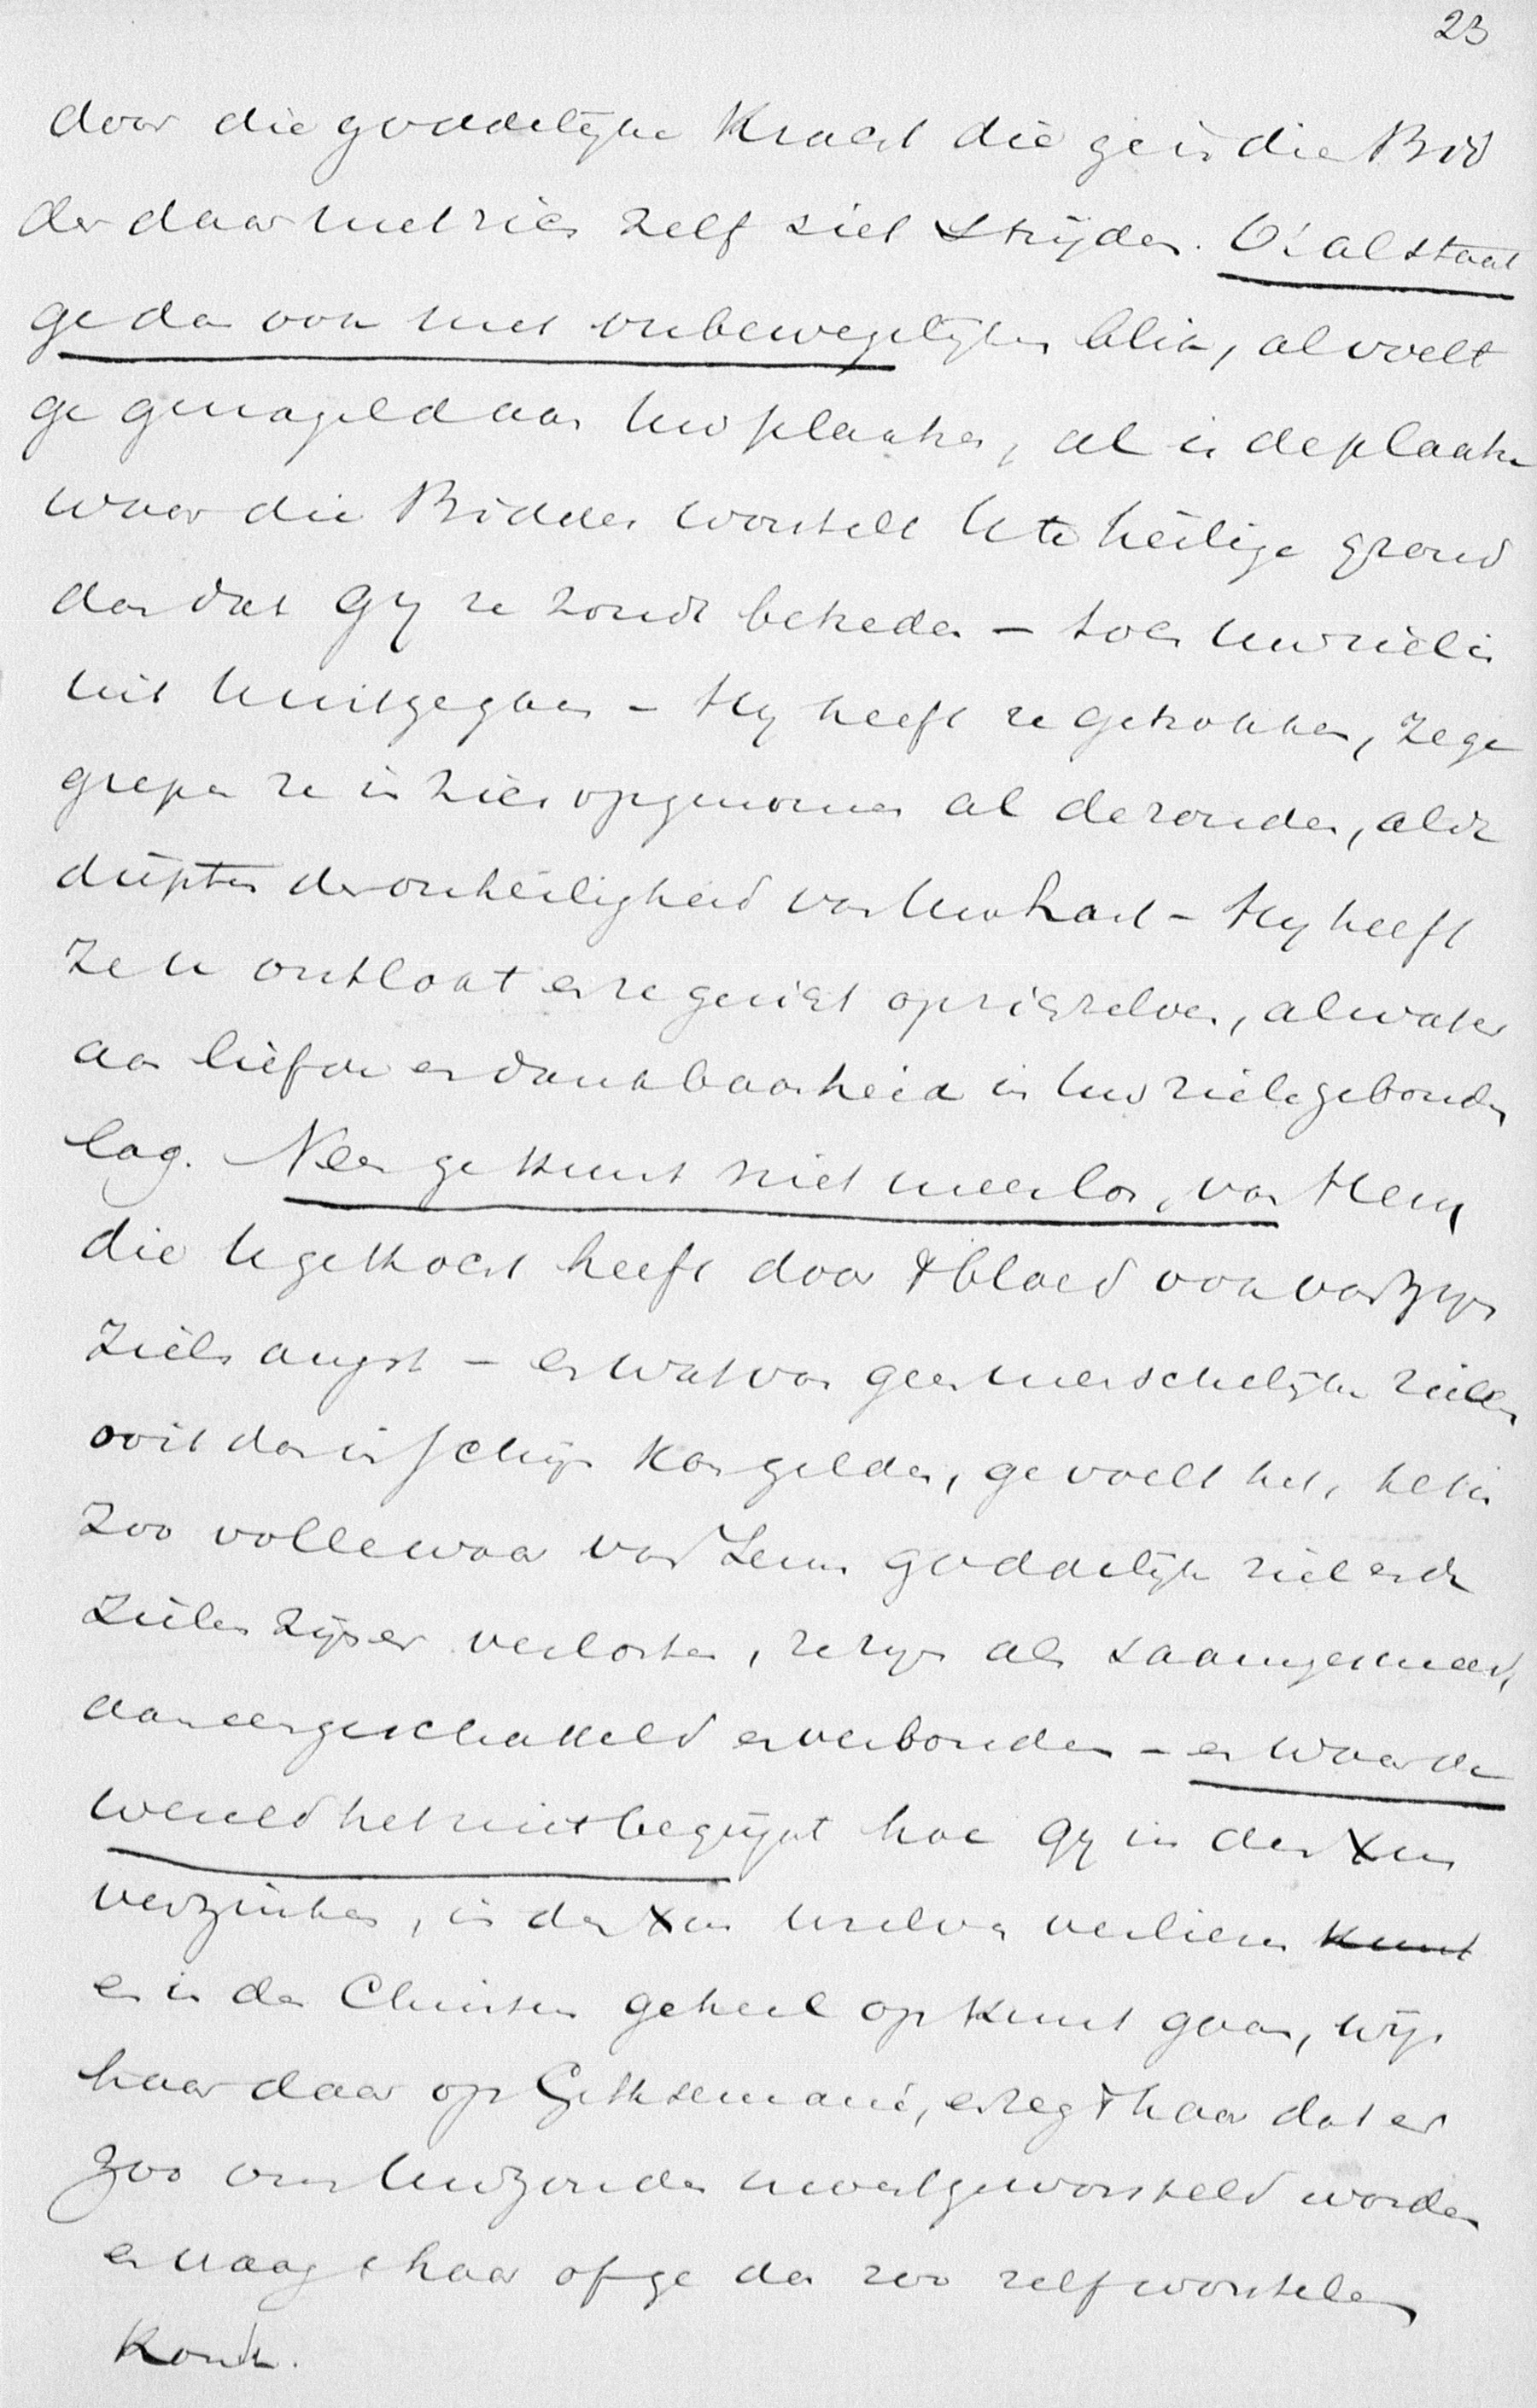 23
door die goddelijke Kracht die ge in dien Bid
der daar met zich zelf ziet strijden. O! al staat
ge dan ook met onbewegelijken blik, al voelt
ge genageld aan Uw plaatse, al is de plaatse
waar die Bidder worstelt U te heilige grond
dan dat Gij ze zoudt betreden – toch Uw ziel is
uit U uitgegaan – Hij heeft ze getrokken, ze ge
grepen ze in zich opgenomen al de zonden, al de
diepten der onheiligheid van Uw hart – Hij heeft
ze U ontlokt en ze gericht op zichzelven, al wat er
aan liefde en dankbaarheid in Uw ziele gebonden
lag. Neen ge kunt niet meer los, van Hem
die U gekocht heeft door 't bloed ook van zijn
Zielsangst – en wat van geen menschelijke zielen
ooit dan in schijn kan gelden, ge voelt het, het is
zoo volle waar van Jezus goddelijke ziel en de
zielen zijner verlosten, ze zijn als saamgesmeed,
aaneengeschakeld en verbonden – en waar de
wereld het niet begrijpt hoe Gij in den Xus
verzinken, in den Xus Uzelven verliezen kunt
en in den Christus geheel op kunt gaan, wijs
haar daar op Gethsemané, en zeg 't haar dat er
zoo om Uw zonden moest geworsteld worden
en vraag 't haar of ge dan zoo zelf worstelen
kondt.